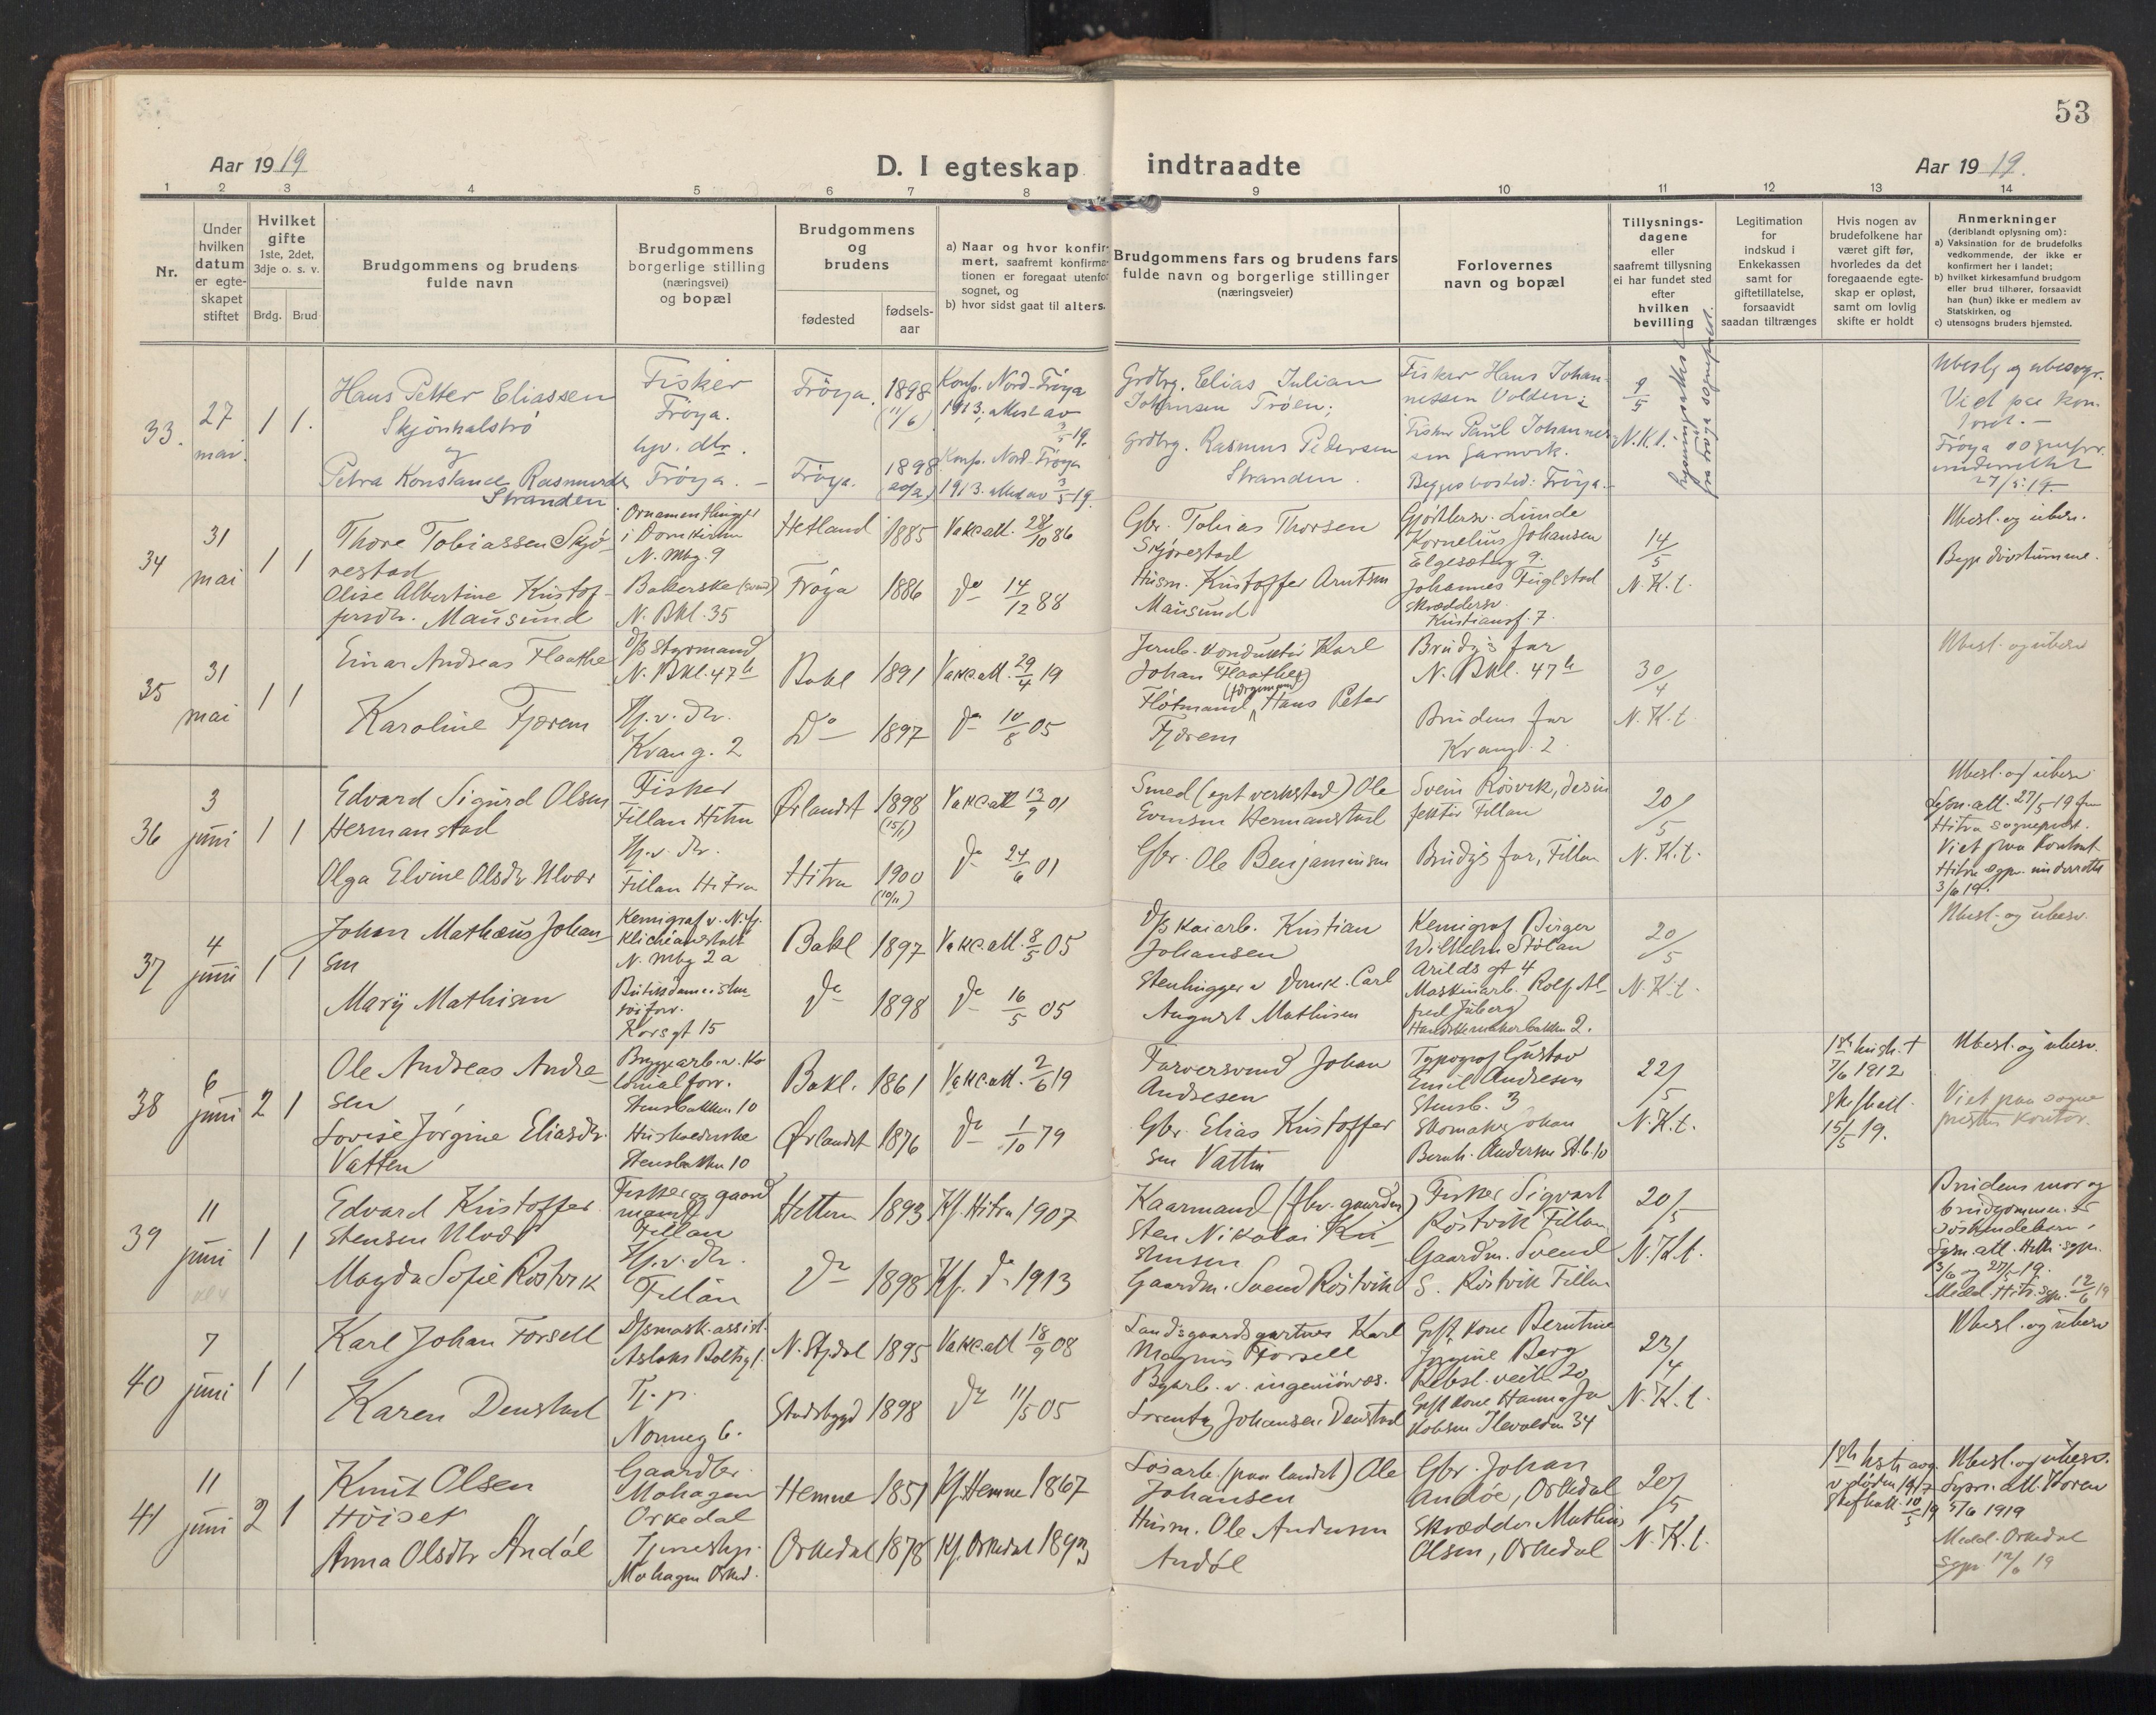 53
Aar 1919
D. I egteskap indtraadte
Aar 1919.
1 2 3 4 5 6 7 8 9 10 11 12 13 14
Nr.
Under hvilken datum er egteskapet stiftet
Hvilket gifte 1ste, 2det, 3dje o. s. v.
Brdg. Brud
Brudgommens og brudens fulde navn
Brudgommens borgerlige stilling (næringsvei) og bopæl
Brudgommens og brudens
fødested
fødselsaar
a) Naar og hvor konfirmert, saafremt konfirmationen er foregaat utenfor sognet, og
b) hvor sidst gaat til alters.
Brudgommens fars og brudens fars fulde navn og borgerlige stillinger (næringsveier)
Forlovernes navn og bopæl
Tillysningsdagene eller saafremt tillysning ei har fundet sted efter hvilken bevilling
Legitimation for indskud i Enkekassen samt for giftetillatelse, forsaavidt saadan tiltrænges
Hvis nogen av brudefolkene har været gift før, hvorledes da det foregaaende egteskap er opløst, samt om lovlig skifte er holdt
Anmerkninger (deriblandt oplysning om):
a) Vaksination for de brudefolks vedkommende, der ikke er konfirmert her i landet;
b) hvilket kirkesamfund brudgom eller brud tilhører, forsaavidt han (hun) ikke er medlem av Statskirken, og
c) utensogns bruders hjemsted.
33. 27 mai. 1 1.
Hans Petter Eliassen
Skjönhalströ
og
Petra Konstance Rasmusdr
Stranden
Fisker
Fröya.
hjv. dtr.
Fröya.
Fröya. 1898 (11/6)
Fröya. 1898 (20/2)
Konf. Nord-Fröya
1913; attest av 3/5 19.
Konf. Nord-Fröya
1913. attest av 3/5 19.
Grdbrg. Elias Julian
Johansen Tröen;
Grdbrg. Rasmus Pedersen
Stranden.
Fisker Hans Johannessen Volden;
Fisker Paul Johannessen
Begges bosted: Fröya.
9/5
N.K.t.
lysningsattest
fra Fröya sogneprest.
Ubesl. og ubesvgr.
Viet paa kontoret.
Fröya sogneprest
underrettet
27/5.19.
34 31 mai 1 1
Thore Tobiassen Skjörestad
Olise Albertine Kristoffersdr. Mausund
Ornamenthugger
i Domkirken
N. Mbg. 9
Bakerske
N. Bkl. 35
Hetland 1885 Vakc.att. 28/10 86
Fröya 1886 do 14/12 88
Gbr. Tobias Thorsen
Skjörestad
Husm. Kristoffer Arntsen
Mausund
Gjörtlersv. Lunde
Kornelius Johansen
Elgesæterg 9.
Johannes Fuglstad
skræddersv.
Kristiansf. 7.
14/5
N.K.t.
Ubesl. og ubesv.
Begge dövstumme.
35 31 mai 1 1
Einar Andreas Flaathe
Karoline Fjærem
D/s styrmand
N. Bkl. 47b
Hj.v. dtr.
Kvang. 2
Bakl 1891 Vakc.att. 29/4 19
Do 1897 do 10/8 05
Jernb. konduktör Karl
Johan Flaathe
Flötmand (förgemand) Hans Peter
Fjærem
Brudg's far
N. Bkl. 47b
Brudens far
Kvang. 2
30/4
N.K.t.
Ubesl. og ubesv
36 3 juni 1 1
Edvard Sigurd Olsen
Hermanstad
Olga Elvine Olsdtr Ulvær
Fisker
Fillan Hitra
Hj.v. dtr.
Fillan Hitra
Ørlandet 1898 (15/1) Vakc.att 13/9 01
Hitra 1900 (19/11) do 24/6 01
Smed (eget verksted) Ole
Evensen Hermanstad
Gbr. Ole Benjaminsen
Svein Rösvik, desinfektör Fillan
Brudg's far, Fillan
20/5
N.K.t.
Ubesl. og ubesv.
Lysn. att. 27/5 19 fra
Hitra sogneprest.
Viet paa kontoret
Hitra sgpr. underrettet
3/6 19.
37 4 juni 1 1
Johan Mathæus Johansen
Mary Mathisen
Kemigraf v. N.fj.
klicheanstalt
N. Mbg 2a
Korsgt 15
Bakl 1897 Vakc.att. 8/5 05
do 1898 do 16/5 05
D/s kaiarb. Kristian
Johansen
Stenhugger v Domk. Carl
August Mathisen
Kemigraf Birger
Wilhelm Stölan
Arildsgt 4
Maskinarb. Rolf Alfred Juberg
Handskemakerbakken 2.
20/5
N.K.t.
Ubesl. og ubesv.
38 6 juni 2 1
Ole Andreas Andresen
Lovise Jörgine Eliasdr.
Vatten
Bryggearb. v. Kolonialforr.
Stensbakken 10
Husholderske
Stensbakken 10
Bakl. 1861 Vakc.att. 2/6 19
Ørlandet 1876 do 1/10 79
Farversvend Johan
Andresen
Gbr. Elias Kristoffersen Vatten
Typograf Gustav
Emil Andresen
Stensb. 3
Skomaker Johan
Bernh. Andersen St.b. 10
22/5
N.K.t.
1ste hustr. †
7/6 1912
skifteatt.
15/5 19.
Ubesl. og ubesv.
Viet paa sogneprestens kontor.
39 11 juni 1 1
Edvard Kristoffer
Stensen Ulvær
Magda Sofie Röstvik
Fisker og gaardmand
Fillan
Hj.v. dtr.
Fillan
Hitra 1893 Kf. Hitra 1907
do 1898 Kf. do 1913
Kaarmand (fhv. gaardm)
Sten Nikolai Kristensen
Gaardm. Svend Röstvik
Fisker Sigvart
Röstvik Fillan
Gaardm. Svend
S. Röstvik Fillan
20/5
N.K.t.
Brudens mor og
brudgommen er
söskendebarn.
Lysn. att. Hitr. sgpr.
3/6 og 27/5 19.
Medd. Hitr. sgpr. 12/6 19
40 7 juni 1 1
Karl Johan Forsell
Karen Denstad
D/s mask. assist.
Aslaks Boltsgt.
Tj. p.
Nonneg 6.
N. Stjdal 1895 Vakc.att 18/9 08
Stadsbygd 1898 do 11/5 05
Landsgaardsgartner Karl
Magnus Forsell
Byarb. v. ingeniörvæs.
Lorentz Johansen Denstad
Gift kone Berntine
Jörgine Berg
Rebsl. veita 20
Gift kone Hanna Jakobsen Ilevolden 34
23/4
N.K.t.
Ubesl. og ubesv
41 11 juni 2 1
Knut Olsen
Höiset
Anna Olsdtr Andöl
Gaardbr.
Mohagen
Orkedal
Tjenestep.
Mohagen Orked.
Hemne 1851 Kf. Hemne 1867
Orkedal 1878 Kf. Orkedal 1893
Lösarb. (paa landet) Ole
Johansen
Husm. Ole Andersen
Andöl
Gbr. Johan
Andöe, Orkedal
Skrædder Mathias
Olsen, Orkedal
20/5
N.K.t.
1ste egtesk. avg.
v. döden 1917
Skifteatt. 10/5 19
Ubesl. og ubesv.
Lysn. att. Horen
5/6 1919
Medd. Orkedal
sgpr 12/6 19